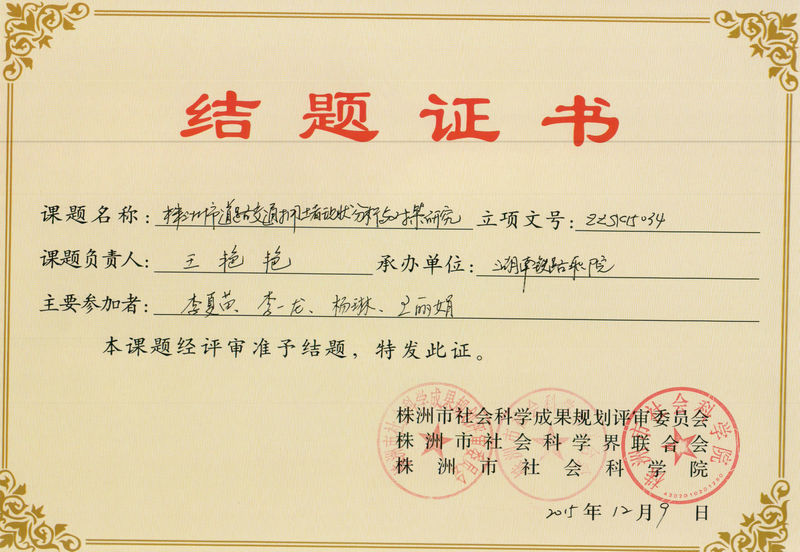 结题证书
课题名称：株洲市道路交通拥堵现状分析与对策研究 立项文号：ZZSK15034
课题负责人：王艳艳 承办单位：湖南铁路科院
主要参加者：李夏苗、李一龙、杨琳、王丽娟
本课题经评审准予结题，特发此证。
株洲市社会科学成果规划评审委员会
株洲市社会科学界联合会
株洲市社会科学院
2015年12月9日